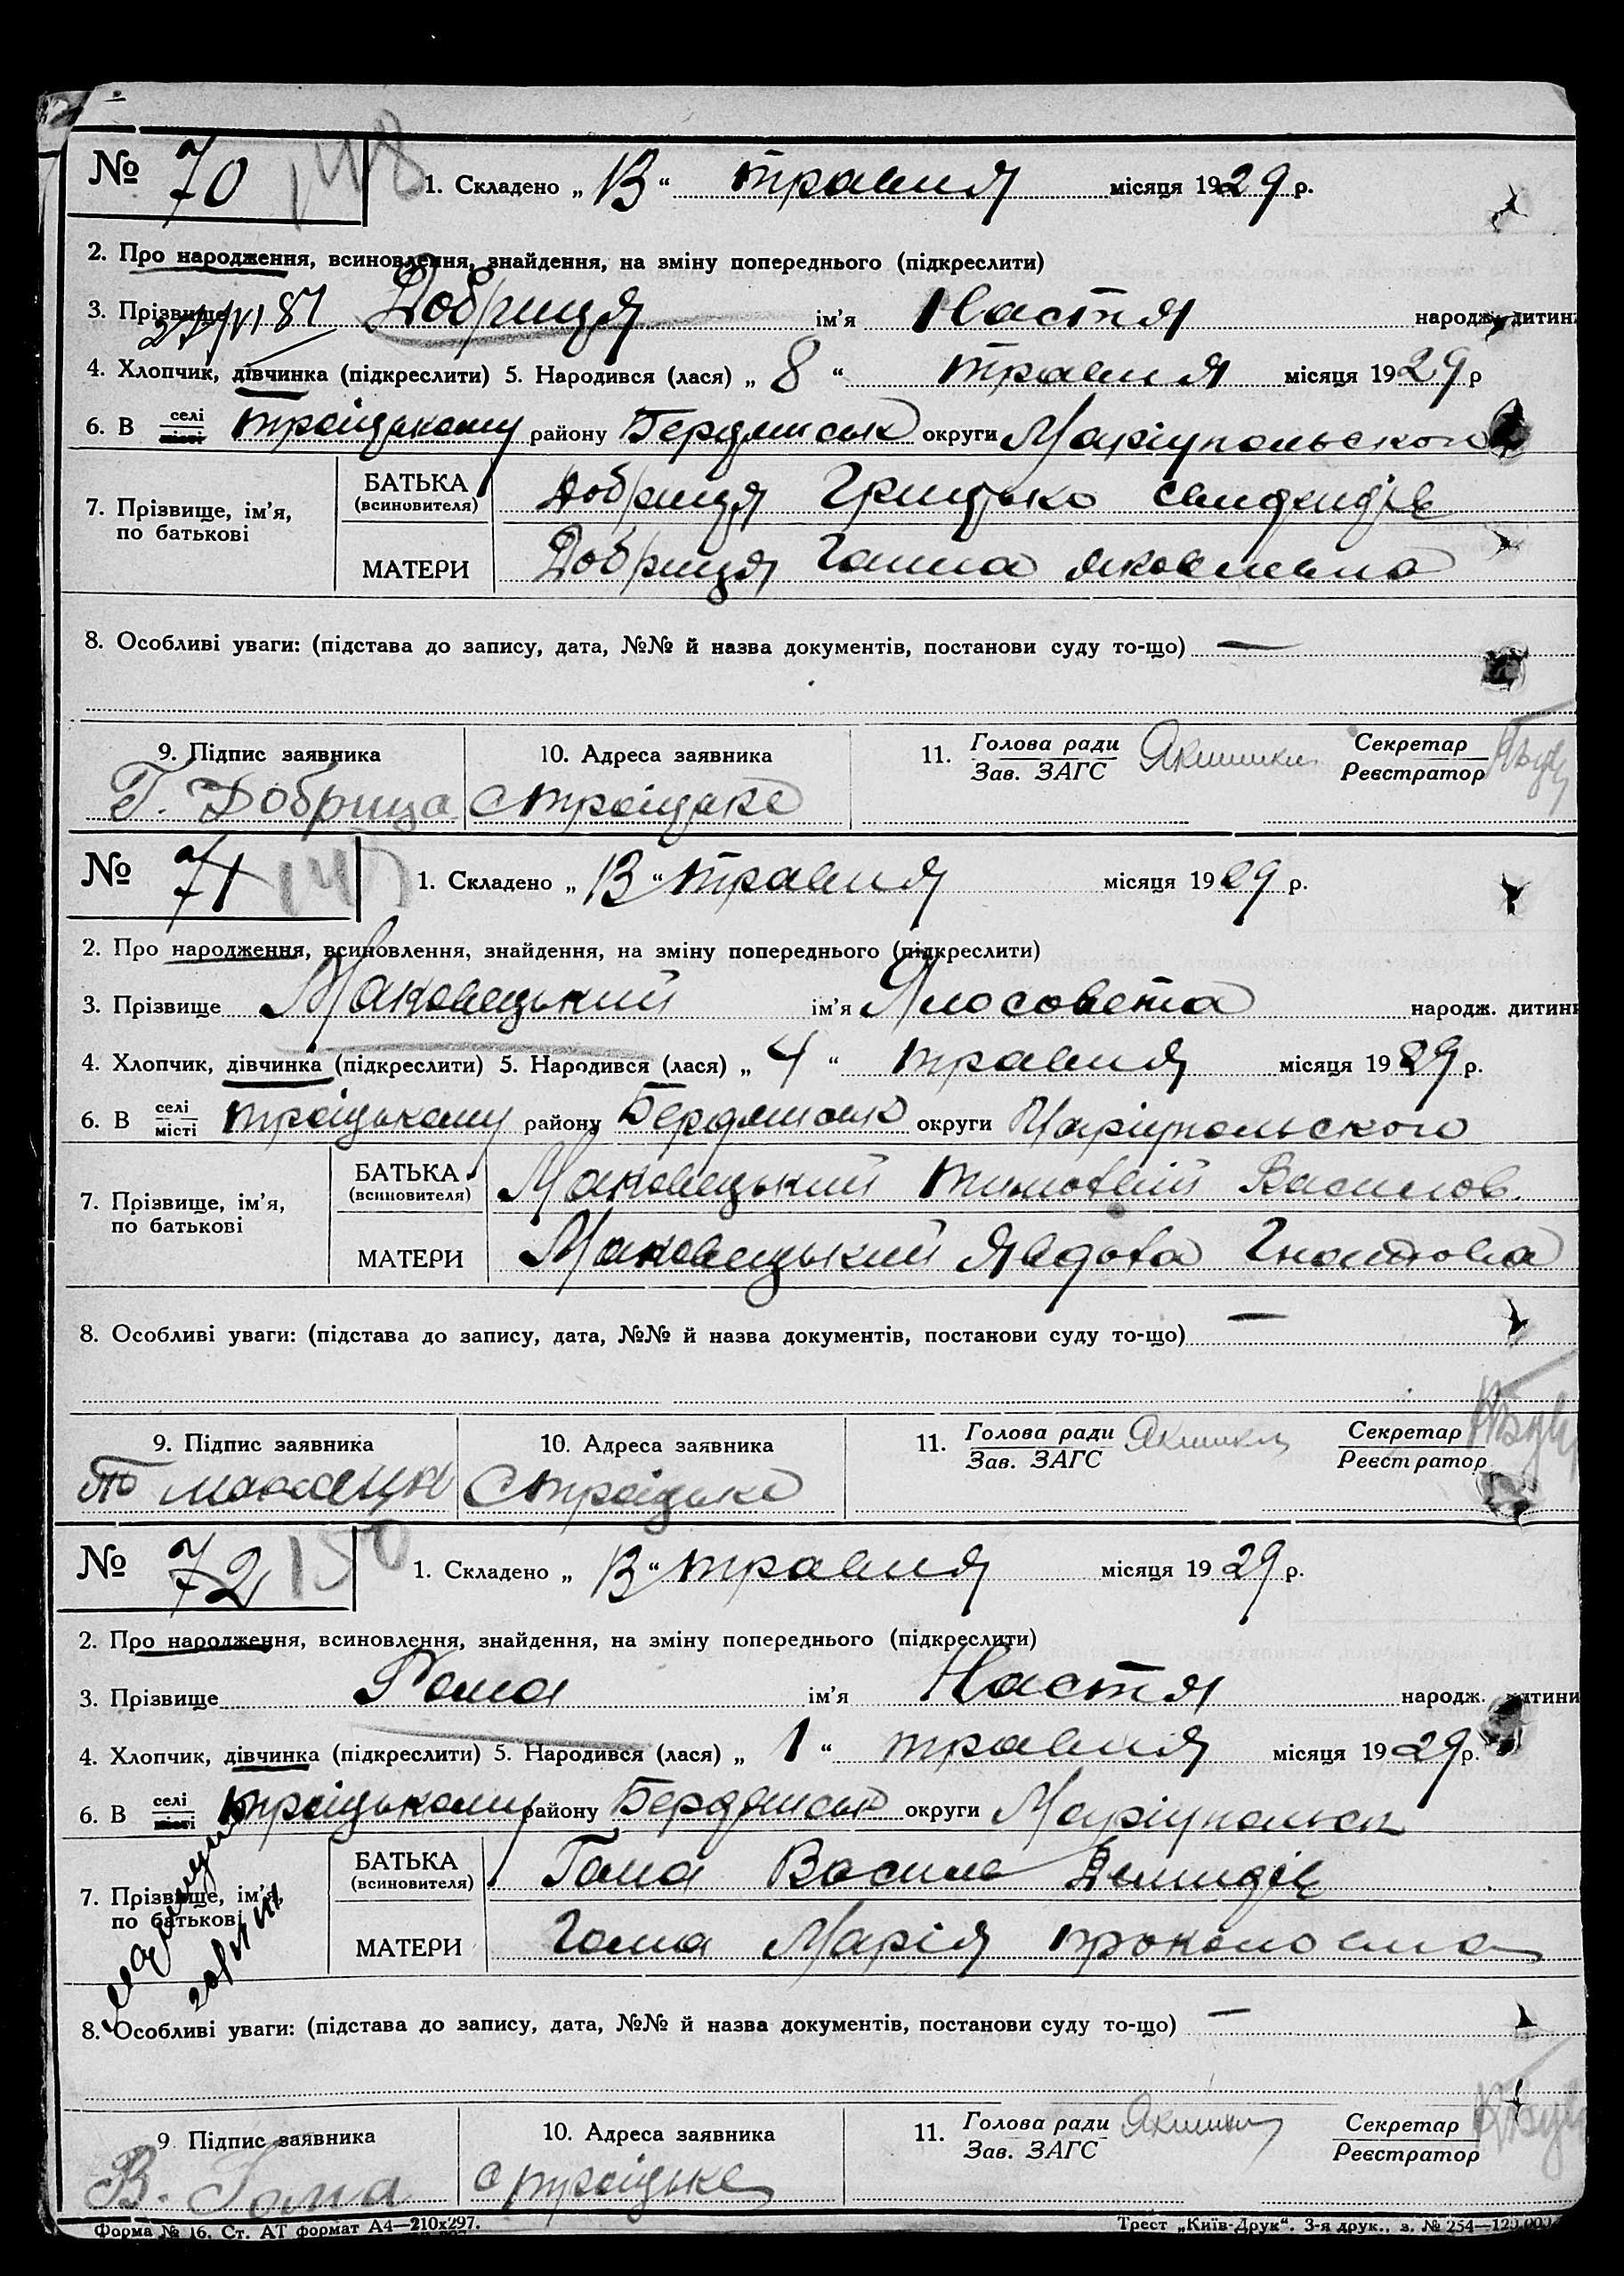 № 70 148 1. Складено „ 13 “ травня місяця 1929 р.
2. Про народження, всиновлення, знайдення, на зміну попереднього (підкреслити)
3. Прізвище Добриця ім’я Настя народж. дитини
4. Хлопчик, дівчинка (підкреслити) 5. Народився (лася) „ 8 “ травня місяця 1929 р
6. В селі місті Троіцькому району Бердянськ округи Маріупольского
7. Прізвище, ім’я, по батькові БАТЬКА (всиновителя) Добриця Грицько
МАТЕРИ Добриця Ганна Яковльвна
8. Особливі уваги: (підстава до запису, дата, №№ й назва документів, постанови суду то-що) —
9. Підпис заявника 10. Адреса заявника 11. Голова ради Зав. ЗАГС Секретар Реєстратор
Г. Добрица С Троіцьке
№ 71 1. Складено „ 13 “ травня місяця 1929 р.
2. Про народження, всиновлення, знайдення, на зміну попереднього (підкреслити)
3. Прізвище Маковецький ім’я народж. дитини
4. Хлопчик, дівчинка (підкреслити) 5. Народився (лася) „ 4 “ травня місяця 1929 р.
6. В селі місті Троіцькому району Бердянськ округи Маріупольского
7. Прізвище, ім’я, по батькові БАТЬКА (всиновителя) Маковецький Тимофій Василов.
МАТЕРИ Маковецький Явдоха Гнатовна
8. Особливі уваги: (підстава до запису, дата, №№ й назва документів, постанови суду то-що) —
9. Підпис заявника 10. Адреса заявника 11. Голова ради Зав. ЗАГС Секретар Реєстратор
С Троіцьке
№ 72 150 1. Складено „ 13 “ травня місяця 1929 р.
2. Про народження, всиновлення, знайдення, на зміну попереднього (підкреслити)
3. Прізвище Гама ім’я Настя народж. дитини
4. Хлопчик, дівчинка (підкреслити) 5. Народився (лася) „ 1 “ травня місяця 1929 р.
6. В селі місті Троіцькому району Бердянськ округи Маріупольск
7. Прізвище, ім’я, по батькові БАТЬКА (всиновителя) Гама Василь Демидів
МАТЕРИ Гама Марія
8. Особливі уваги: (підстава до запису, дата, №№ й назва документів, постанови суду то-що) —
9 Підпис заявника 10. Адреса заявника 11. Голова ради Зав. ЗАГС Секретар Реєстратор
В. Гама с Троіцьке
Форма № 16. Ст. АТ формат А4—210х297. Трест „Київ-Друк“. 3-я друк., з. № 254—120.000